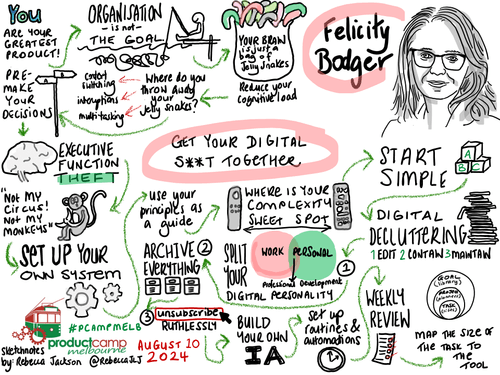 You
ARE YOUR
GREATEST
PRODUCT!
ORGANISATION
- is not -
THE GOAL
YOUR BRAIN
is just a
bag of
Jelly Snakes
Reduce your
cognitive load
Felicity
Bodger
PRE-
MAKE
YOUR
DECISIONS
context
switching
interruptions
multi-tasking
Where do you
throw away
your
jelly snakes?
GET YOUR DIGITAL
S**T TOGETHER
EXECUTIVE
FUNCTION
THEFT
"Not my
Circus!
Not my
monkeys"
SET UP YOUR
OWN SYSTEM
use your
principles as
a guide
WHERE IS YOUR
COMPLEXITY
SWEET SPOT
START
SIMPLE
A
B
C
DIGITAL
DECLUTTERING
1 EDIT 2 CONTAIN 3 MAINTAIN
1
SPLIT
YOUR
WORK
PERSONAL
Professional Development
DIGITAL PERSONALITY
2
ARCHIVE
EVERYTHING
3
unsubscribe
RUTHLESSLY
BUILD
YOUR OWN
IA
set up
routines &
automations
WEEKLY
REVIEW
GOAL
(library)
MAP THE SIZE OF
THE TASK TO
THE TOOL
#PCAMPMELB
productcamp
melbourne
AUGUST 10
2024
sketchnotes
by: Rebecca Jackson @RebeccaJLJ